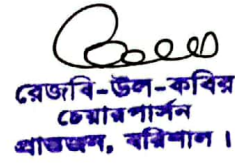 রেজবি-উল-কবির
চেয়ারপার্সন
প্রান্তজন, বরিশাল।